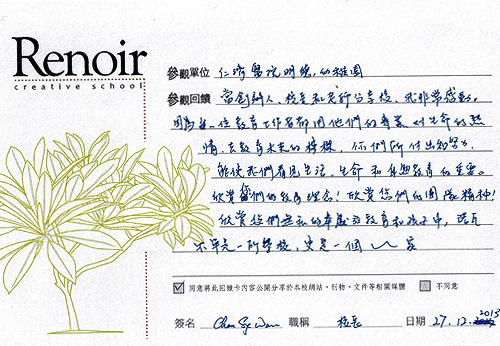 Renoir
creative school
參觀單位 仁濟醫院明德幼稚園
參觀回饋 當創辦人、校長和老師分享後,我非常感動。
因為每一位教育工作者都用他們的專業、對生命的熱
情去教育未來的棟樑,你們所付出的努力,
能使我們看見生活、生命和 教育的重要。
欣賞您們的教育理念!欣賞您們的團隊精神!
欣賞您們無私的奉獻於教育和孩子中,這真
不單是一所學校,更是一個“家”
同意將此回饋卡內容公開分享於本校網站、刊物、文件等相關媒體 不同意
簽名 Chan 職稱 校長 日期 27.12.2013